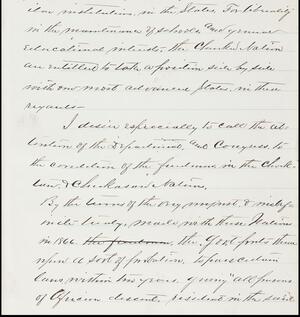 ilar institutions, in the States. For liberality
in the maintenance of schools and general
educational interests, the Choctaw Nation
are entitled to take a position side by side
with our most advanced States, in these
regards.
I desire especially to call the at-
tention of the Department, and Congress to
the condition of the freedmen in the Choc-
taw, & Chickasaw Nation,
By the terms of the very unjust, & 
treaty, made with these Nations
in 1866, the freedmen, the Govt puts them
upon a sort of probation, to pass certain
laws within two years giving "all persons
of African descent, resident in the said